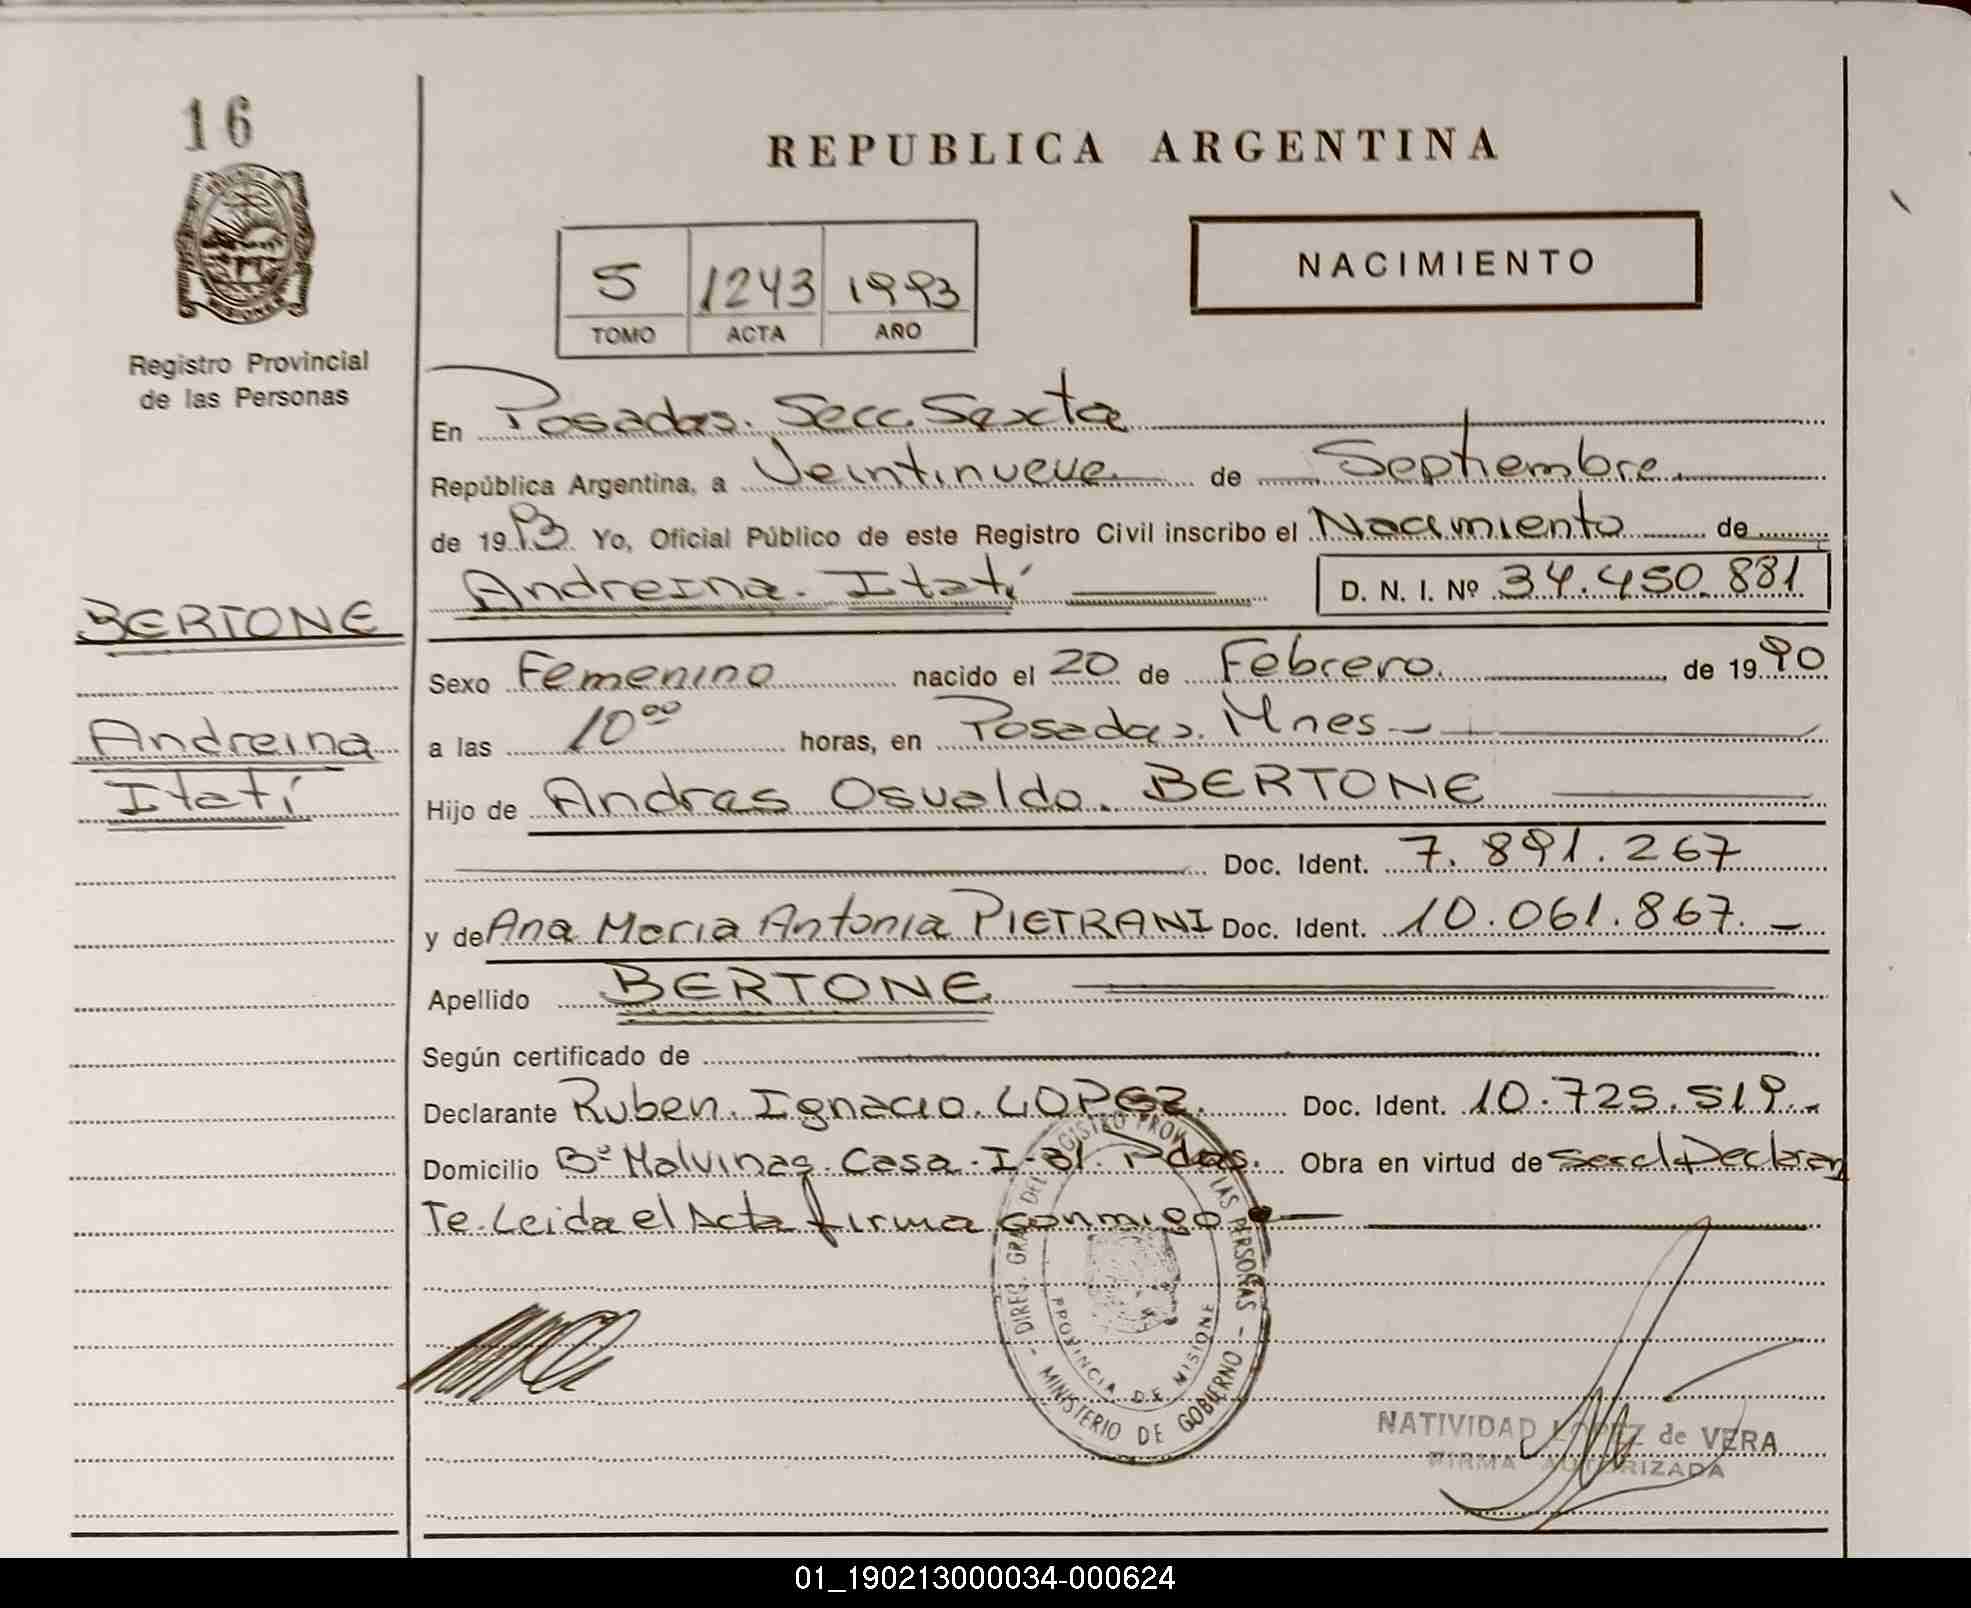 16
REPUBLICA ARGENTINA
NACIMIENTO
5 1243 1993
TOMO ACTA AÑO
Registro Provincial
de las Personas
En Posadas. Secc. Sexta
República Argentina, a Veintinueve de Septiembre
de 1993 Yo, Oficial Público de este Registro Civil inscribo el Nacimiento de
Andreina. Itatí D. N. I. Nº 34.450.881
BERTONE
Sexo Femenino nacido el 20 de Febrero. de 1990
Andreina
a las 10⁰⁰ horas, en Posadas. Mnes
Itatí
Hijo de Andras Osvaldo. BERTONE
Doc. Ident. 7.891.267
y de Ana Maria Antonia PIETRANI Doc. Ident. 10.061.867.
Apellido BERTONE
Según certificado de
Declarante Ruben. Ignacio. LOPEZ. Doc. Ident. 10.725.519.-
Domicilio Bº Malvinas. Casa. I-31. Pdas. Obra en virtud de Ser el Declaran
Te. Leida el Acta firma conmigo
DIREC. GRAL. DEL REGISTRO PROV. DE LAS PERSONAS
PROVINCIA DE MISIONES
MINISTERIO DE GOBIERNO
NATIVIDAD LOPEZ de VERA
FIRMA AUTORIZADA
01_190213000034-000624